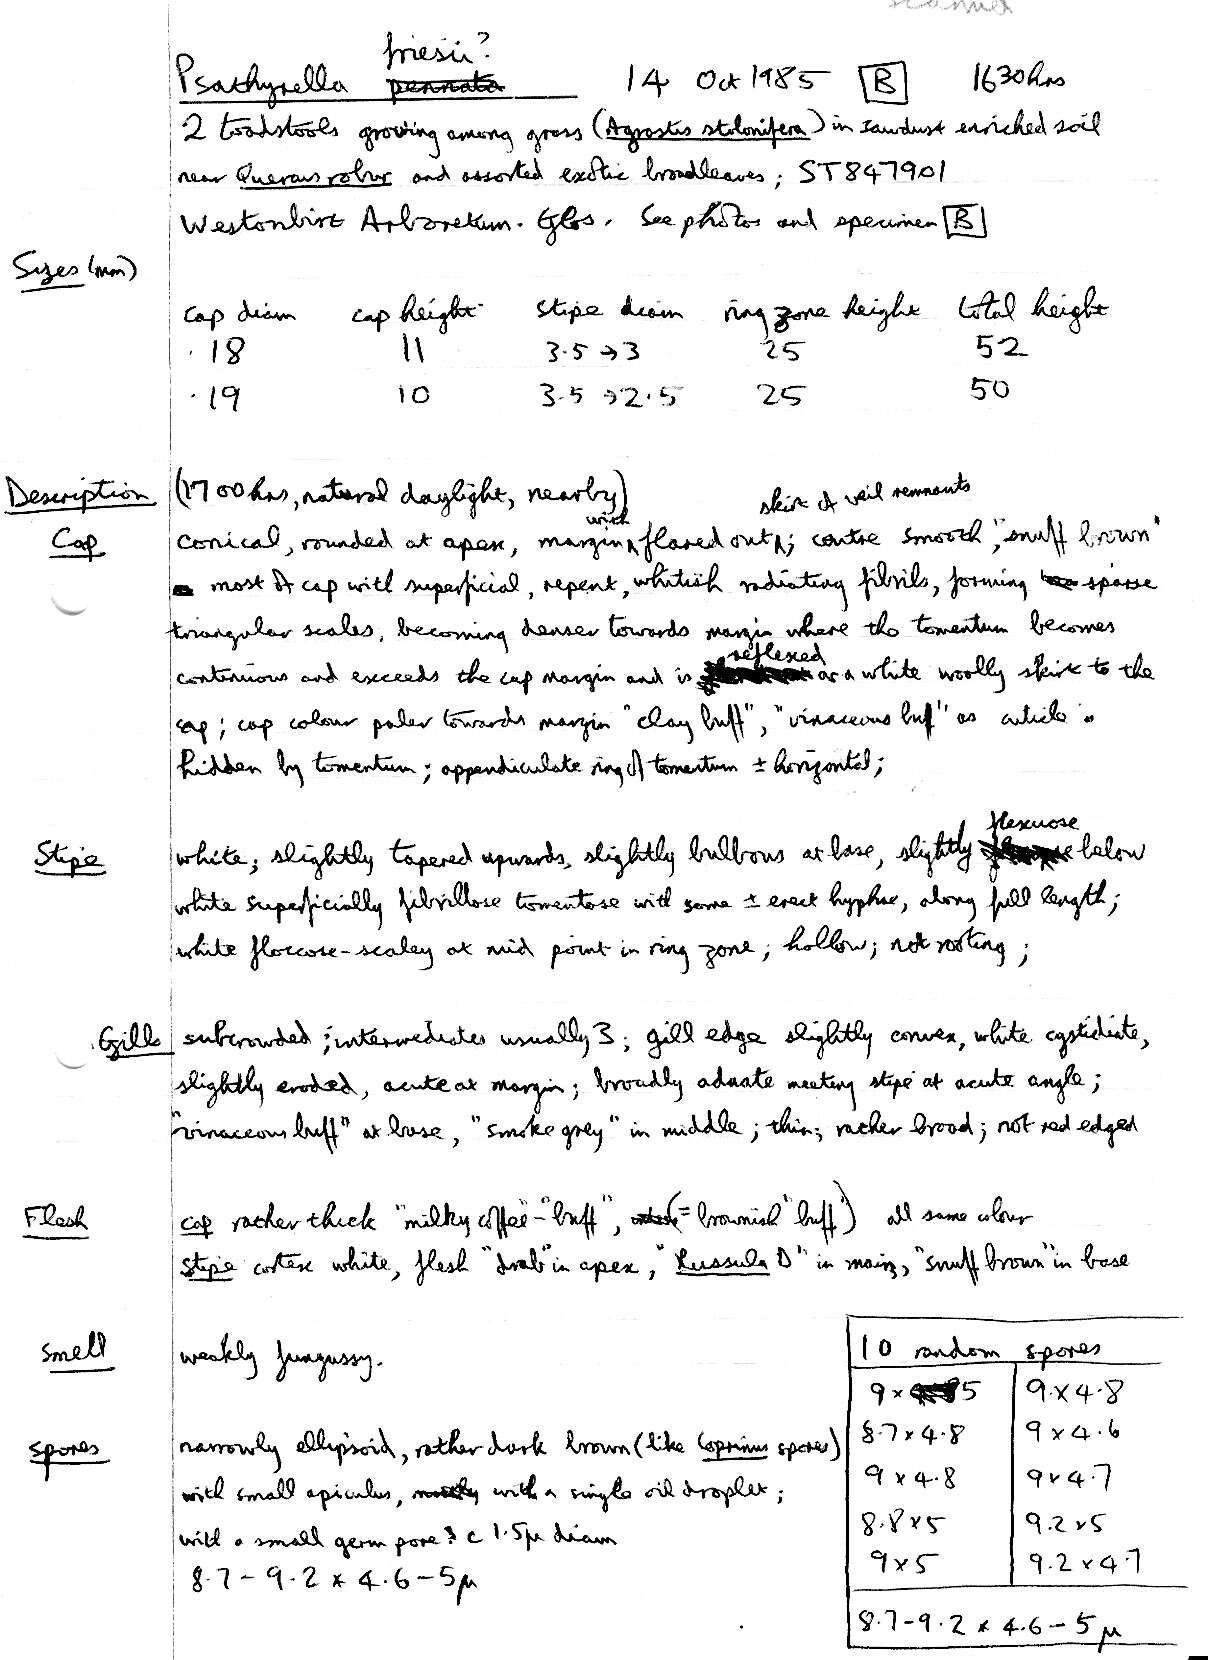 scanned
friesii?
Psathyrella pennata 14 Oct 1985 B 1630hrs
2 toadstools growing among grass (Agrostis stolonifera) in sawdust enriched soil
near Quercus robur and assorted exotic broadleaves; ST847901
Westonbirt Arboretum. Glos. See photos and specimen B
Sizes (mm)
cap diam cap height stipe diam ring zone height total height
18 11 3.5→3 25 52
19 10 3.5→2.5 25 50
Description (1700hrs, natural daylight, nearby)
with skirt of veil remnants
Cap conical, rounded at apex, margin flared out; centre smooth, "snuff brown"
most of cap with superficial, repent, whitish radiating fibrils, forming sparse
triangular scales, becoming denser towards margin where the tomentum becomes
continuous and exceeds the cap margin and is reflexed as a white woolly skirt to the
cap; cap colour paler towards margin "clay buff", "vinaceous buff" as cuticle is
hidden by tomentum; appendiculate ring of tomentum ± horizontal;
flexuose
Stipe white; slightly tapered upwards, slightly bulbous at base, slightly below
white superficially fibrillose tomentose with some ± erect hyphae, along full length;
white floccose-scaley at mid point in ring zone; hollow; not rooting;
Gills subcrowded; intermediates usually 3; gill edge slightly convex, white cystidiate,
slightly eroded, acute at margin; broadly adnate meeting stipe at acute angle;
"vinaceous buff" at base, "smoke grey" in middle; thin; rather broad; not red edged
Flesh cap rather thick "milky coffee"-"buff", (= brownish "buff") all same colour
Stipe cortex white, flesh "drab" in apex, "Russula D" in main, "snuff brown" in base
Smell weakly fungussy.
Spores narrowly ellipsoid, rather dark brown (like Coprinus spores)
with small apiculus, mostly with a single oil droplet;
with a small germ pore? c 1.5µ diam
8.7-9.2 × 4.6-5µ
10 random spores
9 × 5 9 × 4.8
8.7 × 4.8 9 × 4.6
9 × 4.8 9 × 4.7
8.8 × 5 9.2 × 5
9 × 5 9.2 × 4.7
8.7-9.2 × 4.6-5µ